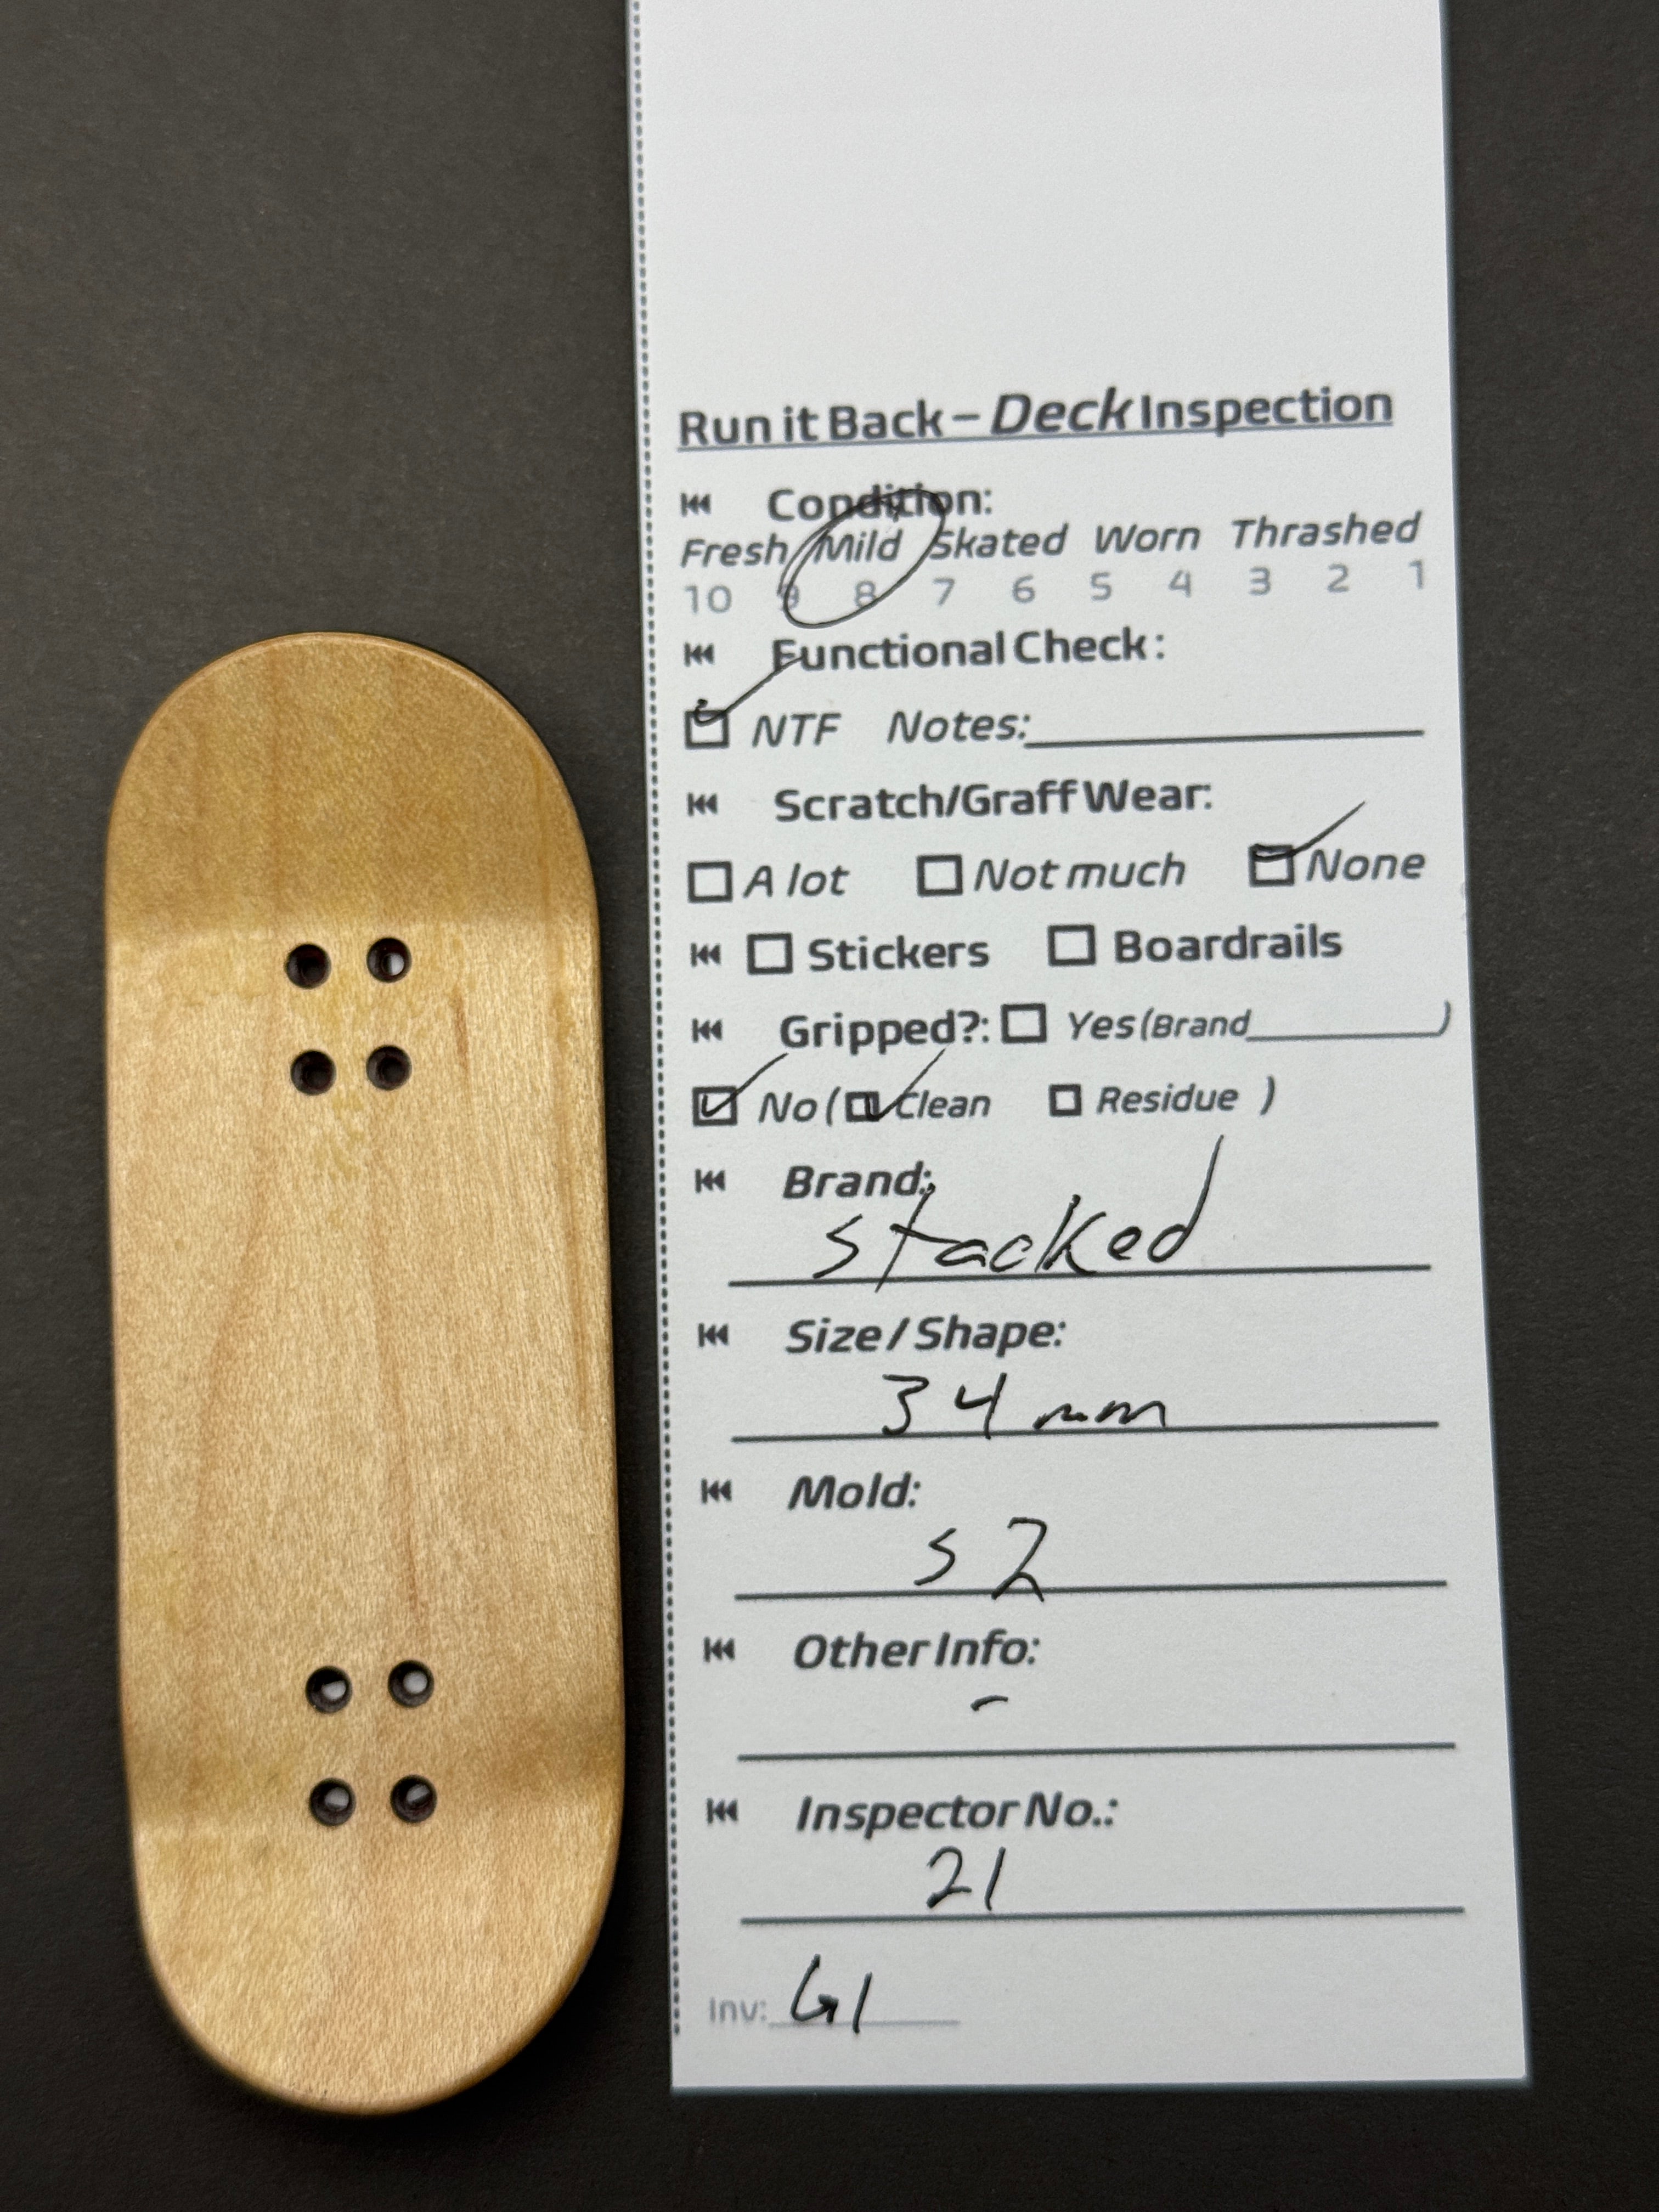 Run it Back – Deck Inspection
Condition:
Fresh Mild Skated Worn Thrashed
10 9 8 7 6 5 4 3 2 1
Functional Check:
NTF Notes:
Scratch/Graff Wear:
A lot Not much None
Stickers Boardrails
Gripped?: Yes (Brand )
No ( Clean Residue )
Brand:
stacked
Size / Shape:
34 mm
Mold:
s2
Other Info:
-
Inspector No.:
21
Inv: G1